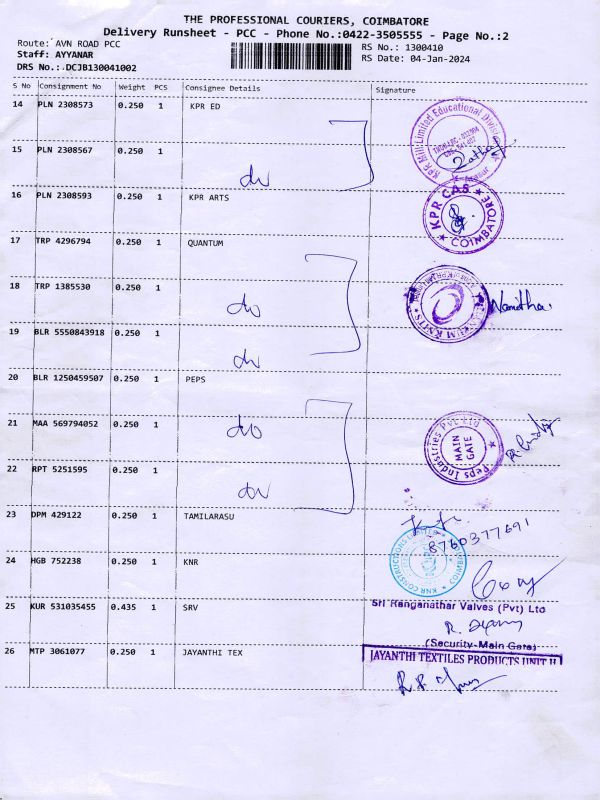 THE PROFESSIONAL COURIERS, COIMBATORE
Delivery Runsheet - PCC - Phone No.:0422-3505555 - Page No.:2
Route: AVN ROAD PCC RS No.: 1300410
Staff: AYYANAR RS Date: 04-Jan-2024
DRS No.:-DCJB130041002
S No Consignment No Weight PCS Consignee Details Signature
14 PLN 2308573 0.250 1 KPR ED
KPR Mill Limited Educational Division
15 PLN 2308567 0.250 1 do
16 PLN 2308593 0.250 1 KPR ARTS
KPR CAS ★ COIMBATORE ★
17 TRP 4296794 0.250 1 QUANTUM
18 TRP 1385530 0.250 1 do
Nanidha.
19 BLR 5550843918 0.250 1 do
20 BLR 1250459507 0.250 1 PEPS
21 MAA 569794052 0.250 1 do
Peps Industries Pvt Ltd
MAIN
GATE
22 RPT 5251595 0.250 1 do
23 DPM 429122 0.250 1 TAMILARASU
8760377691
24 HGB 752238 0.250 1 KNR
KNR CONSTRUCTIONS LIMITED
25 KUR 531035455 0.435 1 SRV
Sri Ranganathar Valves (Pvt) Ltd
(Security-Main Gate)
26 MTP 3061077 0.250 1 JAYANTHI TEX
JAYANTHI TEXTILES PRODUCTS UNIT II